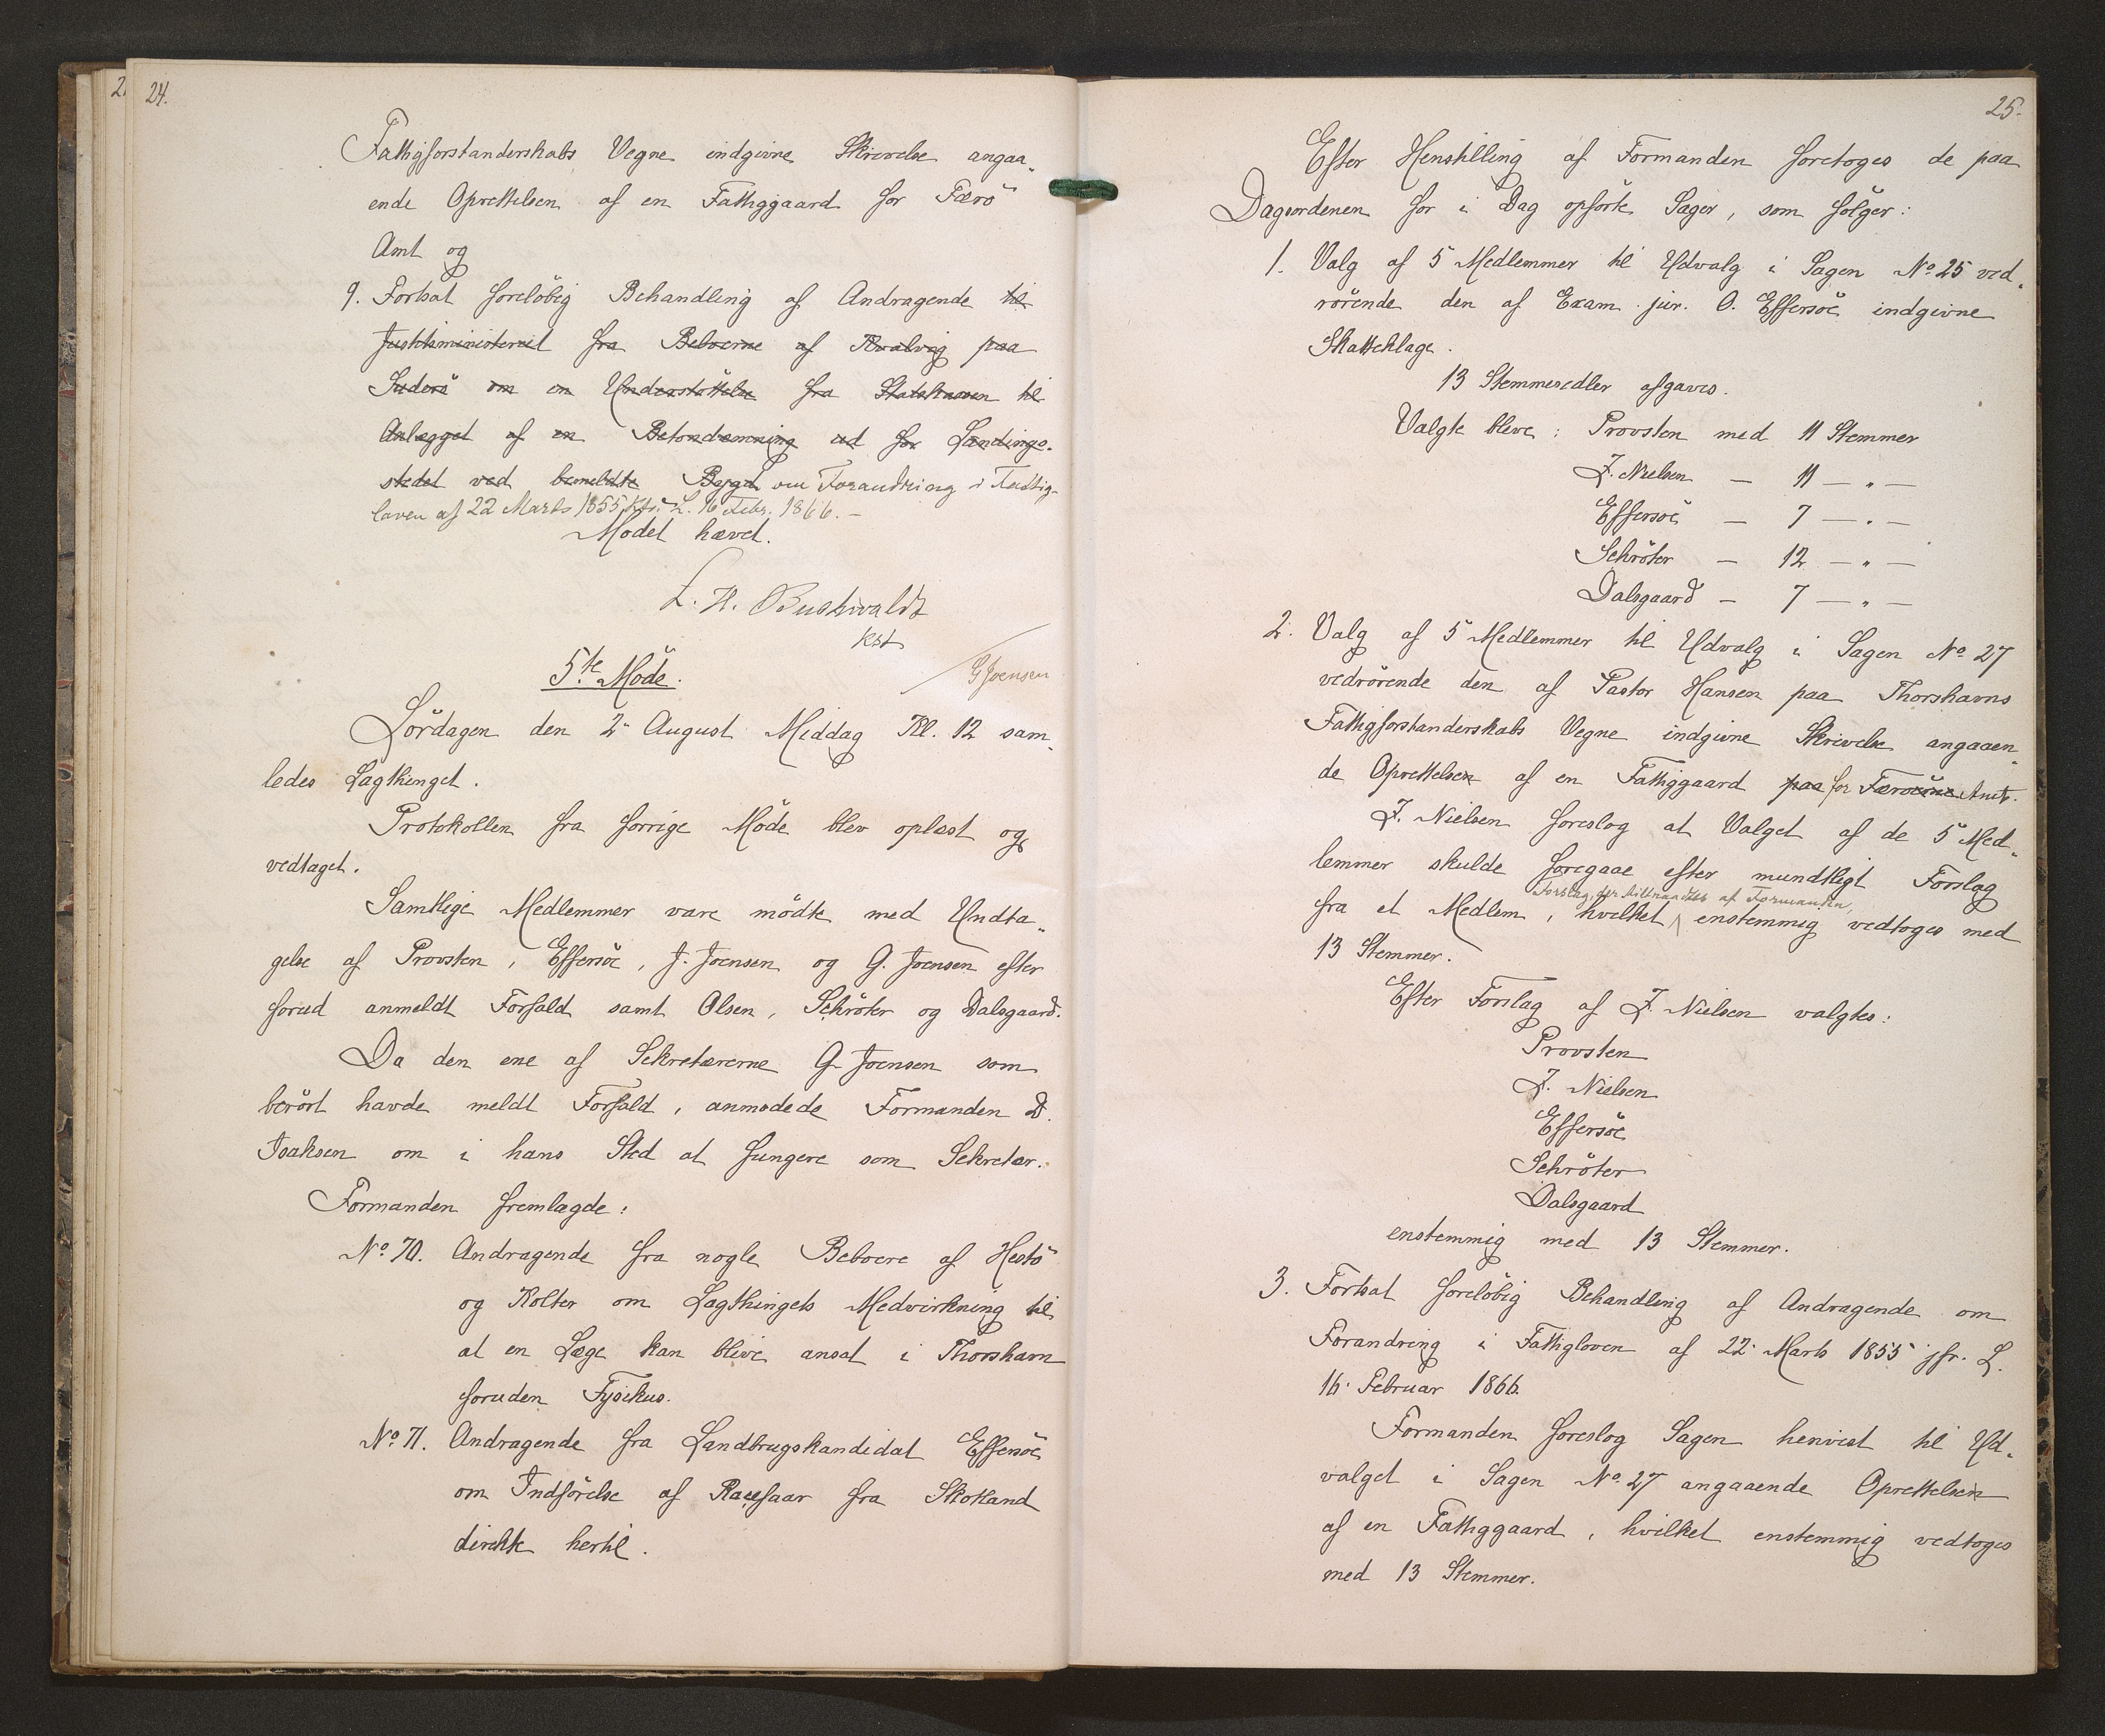 24.
Fattigforstanderskabs Vegne indgivne Skrivelse angaa-
ende Oprettelsen af en Fattiggaard for Færö
Amt og
9. Fortsat foreløbig Behandling af Andragende til
Justitsministeriet fra Beboerne af Kvalvig paa
Suderö om en Understöttelse fra Statskassen til
Anlægget af en Betondæmning ud for Landings-
stedet ved bemeldte Bygd om Forandring i Fattig-
loven af 22 Marts 1855 L. 16 Febr. 1866.-
Mödet hævet.
L. H. Buchwaldt
kst
G Joensen
5te Möde.
Lördagen den 2' August Middag Kl. 12 sam-
ledes Lagthinget.
Protokollen fra forrige Möde blev oplæst og
vedtaget.
Samtlige Medlemmer vare mödte med Undta-
gelse af Provsten, Effersöe, J. Joensen og G. Joensen efter
forud anmeldt Forfald samt Olsen, Schröter og Dalsgaard.
Da den ene af Sekretærerne G. Joensen som
berört havde meldt Forfald, anmodede Formanden D.
Isaksen om i hans Sted at fungere som Sekretær.
Formanden fremlagde:
No. 70. Andragende fra nogle Beboere af Hestö
og Kolter om Lagthingets Medvirkning til
at en Læge kan blive ansat i Thorshavn
foruden Fysikus.
No. 71. Andragende fra Landbrugskandidat Effersöe
om Indförelse af Racefaar fra Skotland
direkte hertil.
25.
Efter Henstilling af Formanden foretoges de paa
Dagsordenen for i Dag opförte Sager, som fölger:
1. Valg af 5 Medlemmer til Udvalg i Sagen No. 25 ved-
rörende den af Exam. jur. O. Effersöe indgivne
Skatteklage.
13 Stemmesedler afgaves.
Valgte bleve: Provsten med 11 Stemmer
Z. Nielsen — 11 — " —
Effersöe — 7 — " —
Schröter — 12 — " —
Dalsgaard — 7 — " —
2. Valg af 5 Medlemmer til Udvalg i Sagen No. 27
vedrörende den af Pastor Hansen paa Thorshavns
Fattigforstanderskabs Vegne indgivne Skrivelse angaaen-
de Oprettelsen af en Fattiggaard paa for Færöerne Amt.
Z. Nielsen foreslog at Valget af de 5 Med-
lemmer skulde foregaae efter mundtligt Forslag
Forslag, der af Formanden,
fra et Medlem, hvilket enstemmig vedtoges med
13 Stemmer.
Efter Forslag af Z. Nielsen valgtes:
Provsten
Z. Nielsen
Effersöe
Schröter
Dalsgaard
enstemmig med 13 Stemmer.
3. Fortsat forelöbig Behandling af Andragende om
Forandring i Fattigloven af 22' Marts 1855 jfr. L.
16' Februar 1866.
Formanden foreslog Sagen henvist til Ud-
valget i Sagen No. 27 angaaende Oprettelsen
af en Fattiggaard, hvilket enstemmig vedtoges
med 13 Stemmer.